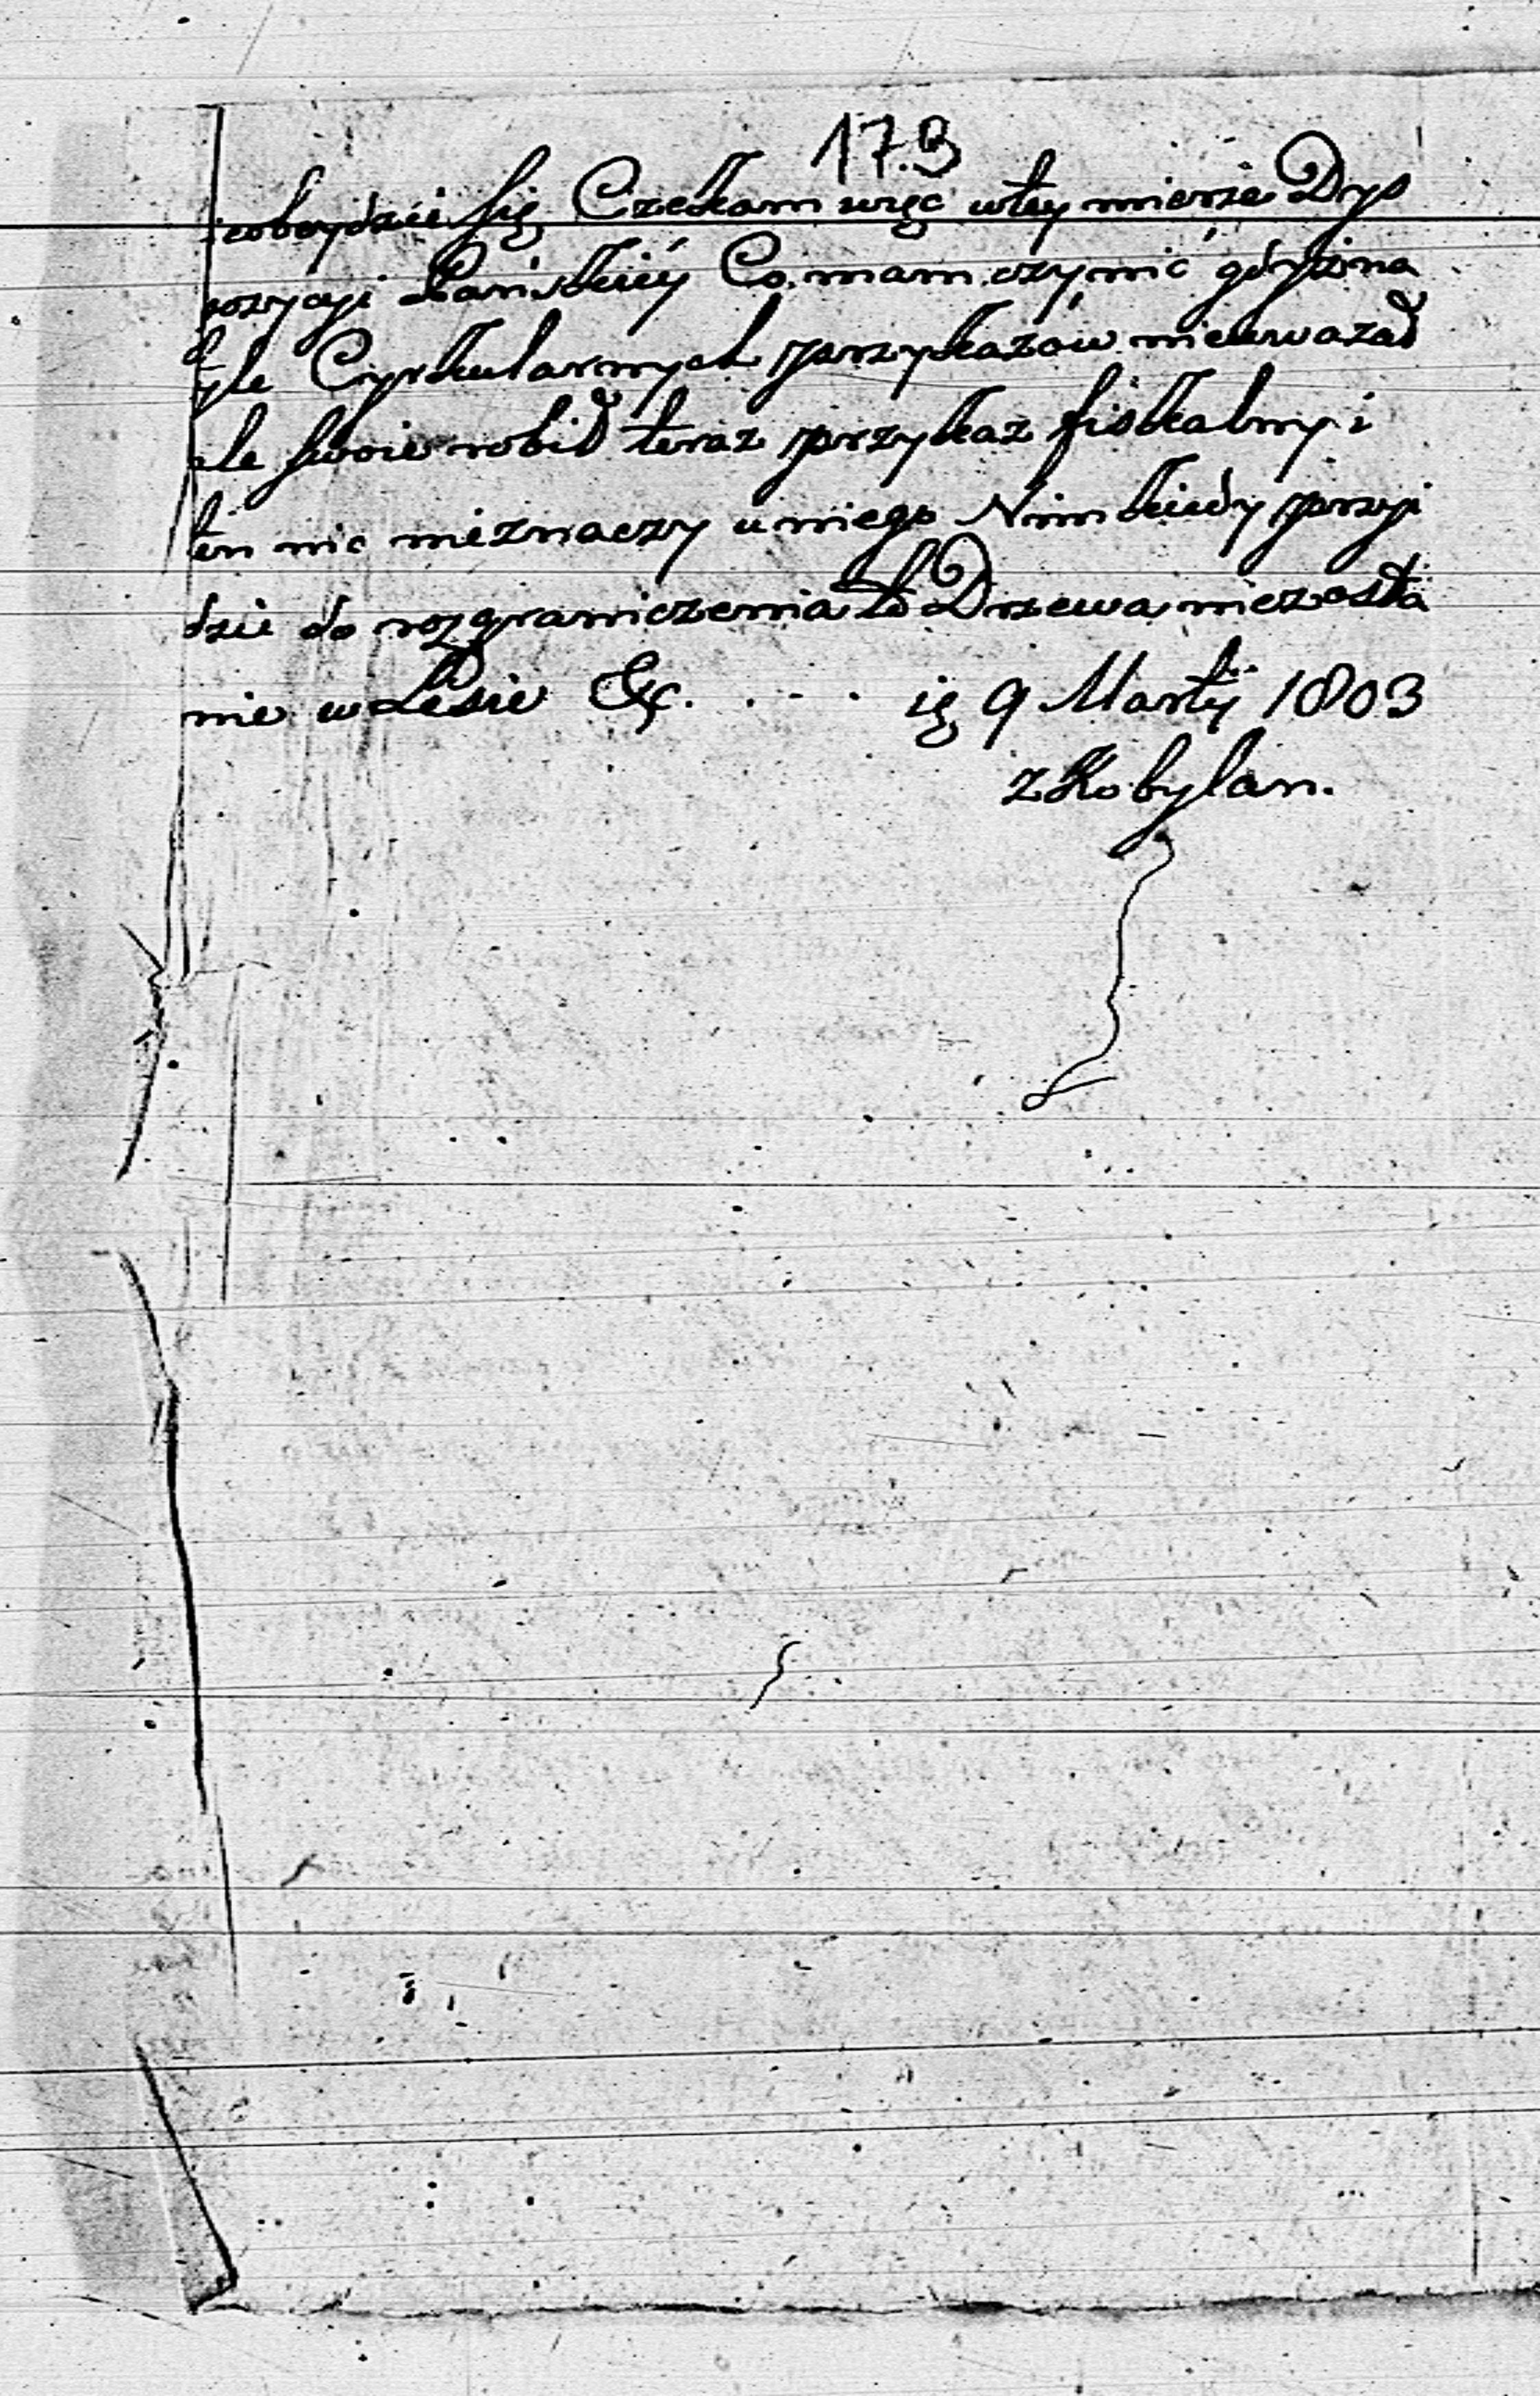 173
eobeydzie się Czekam więc wtey mierze Dys
pozycyi Pańskiéy Co mam czynić gdyż on a
tyle Cyrkularnych przykazów nieuważał
ale swoie robił teraz przykaz fiskalny i
ten nic nieznaczy u niego Nim kiedy przyi
dzie do rozgraniczenia to Drzewa niezosta
nie w Lesie &c. . - - . ię 9 Martij 1803
z Kobylan.